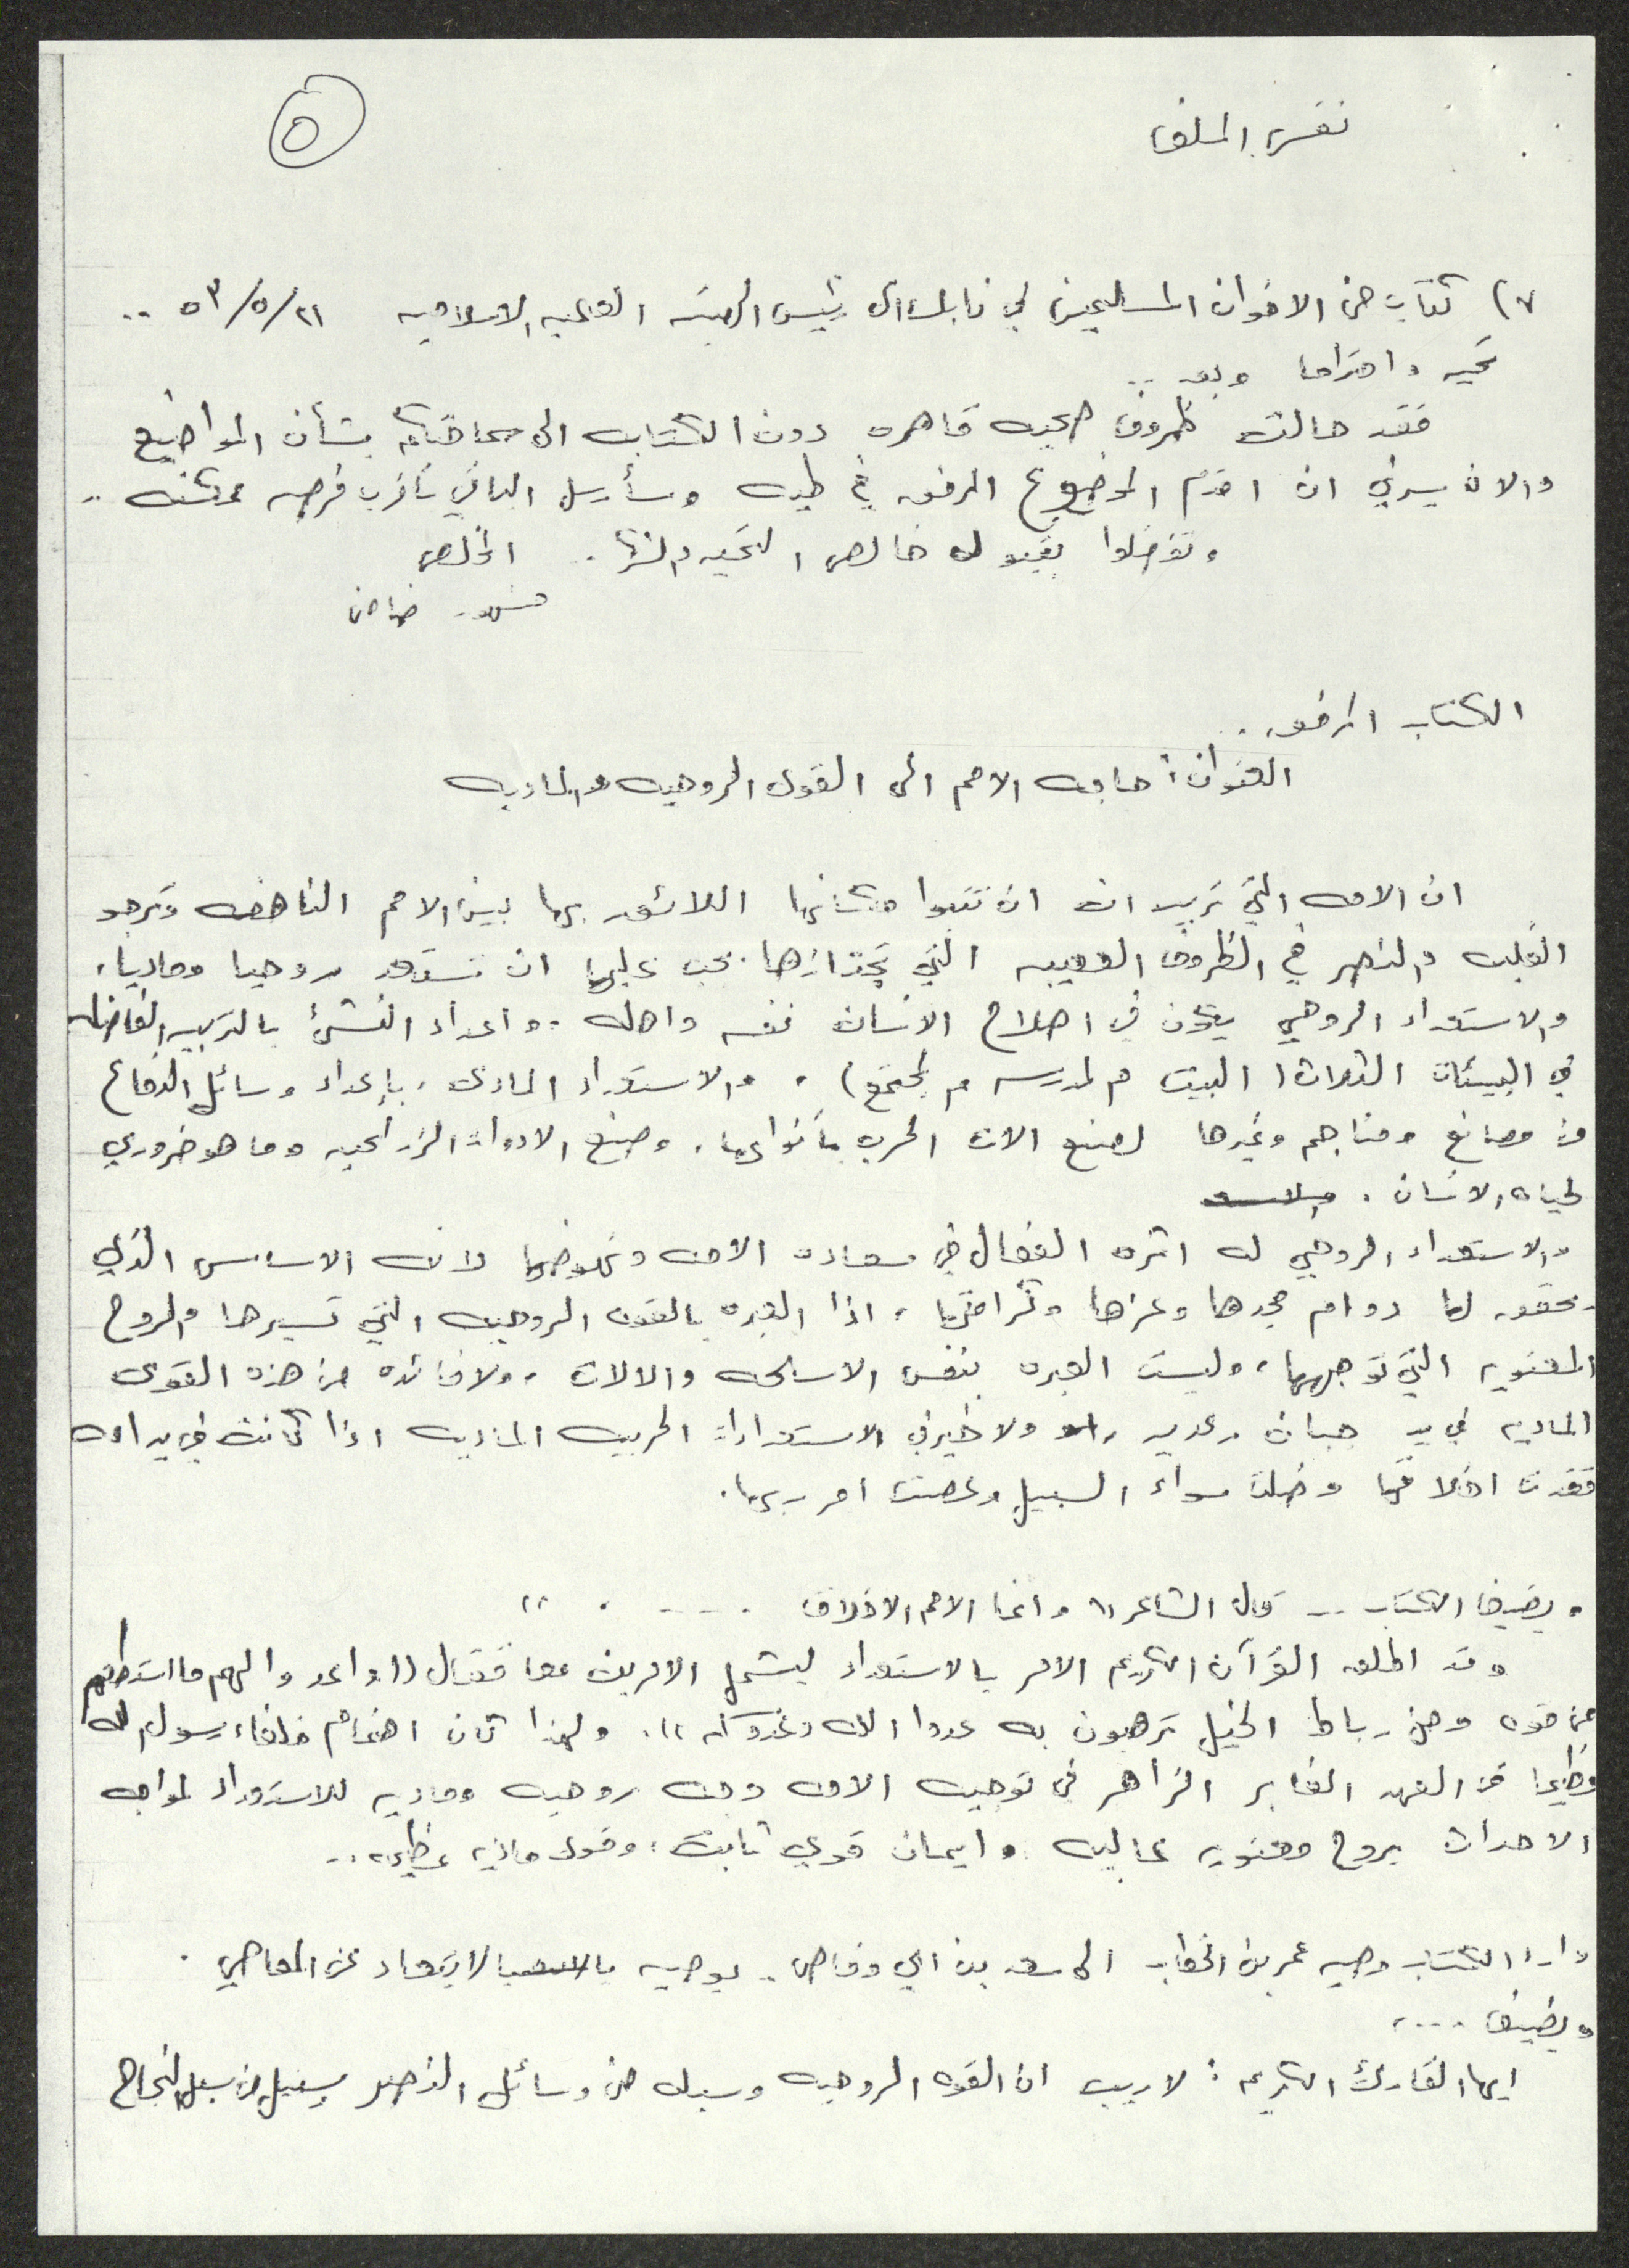 نفس الملف
٥
٧) كتاب من الاخوان المسلمين في نابلس الى رئيس الهيئه العلميه الاسلاميه ٢١/٥/٥٣ ..
تحيه واحتراما وبعد ..
فقد حالت ظروف صحيه قاهره دون الكتابه الى سماحتكم بشأن المواضيع
والان يسرني ان اقدم الموضوع المرفق في طيه وسأرسل الباقي بأقرب فرصه ممكنه ..
وتفضلوا بقبول خالص التحيه والشكر. المخلص
مشهور ضامن
الكتاب المرفق ..
العنوان: حاجه الامم الى القوى الروحيه والماديه
ان الامه التي تريد ان ان تتبوا مكانها اللائق بها بين الامم الناهضه وترجو
الغلبه والنصر في الظروف العصيبه التي تجتازها. يجب عليها ان تستعد روحيا وماديا،
والاستعداد الروحي يكون في اصلاح الانسان نفسه واهله .. واعداد النشئ بالتربيه الفاضله
في البيئات الثلاث (البيت والمدرسه والمجتمع) . والاستعداد المادي، بإعداد وسائل الدفاع
من مصانع ومناجم وغيرها لصنع الات الحرب بأنواعها. وصنع الادوات الزراعيه وما هو ضروري
لحياه الانسان .
والاستعداد الروحي له اثره الفعال في سعاده الامه ونهوضها لانه الاساس الذي
يحقق لها دوام مجدها وعزها وكرامتها، اذا العبره بالقوه الروحيه التي تسيرها والروح
المعنويه التي توجهها، وليست العبره بنفس الاسلحه والالات، ولا فائده من هذه القوى
الماديه في يد جبان رعديد، ولا خير في الاستعدادات الحربيه الماديه اذا كانت في يد امه
فقدت اخلاقها وضلت سواء السبيل وعصت امر ربها.
ويضيف الكتاب .. قال الشاعر "وانما الامم الاخلاق ........ "
وقد اطلق القرآن الكريم الامر بالاستعداد ليشمل الامرين معا فقال "واعدوا لهم ما استطعتم
من قوه ومن رباط الخيل ترهبون به عدوا الله وعدوكم". ولهذا كان اهتمام خلفاء رسول الله
عظيما في العهد الغابر الزاهر في توجيه الامه وجهه روحيه وماديه للاستعداد لمواجهه
الاحداث بروح معنويه عاليه وايمان قوي ثابت، وقوى ماديه عظيمه..
واراد الكتاب وصيه عمر بن الخطاب الى سعد بن ابي وقاص. يوصيه بالابتعاد عن المعاصي .
ويضيف ....
ايها القارئ الكريم: لا ريب ان القوه الروحيه وسيله من وسائل النصر وسبيل من سبل النجاح